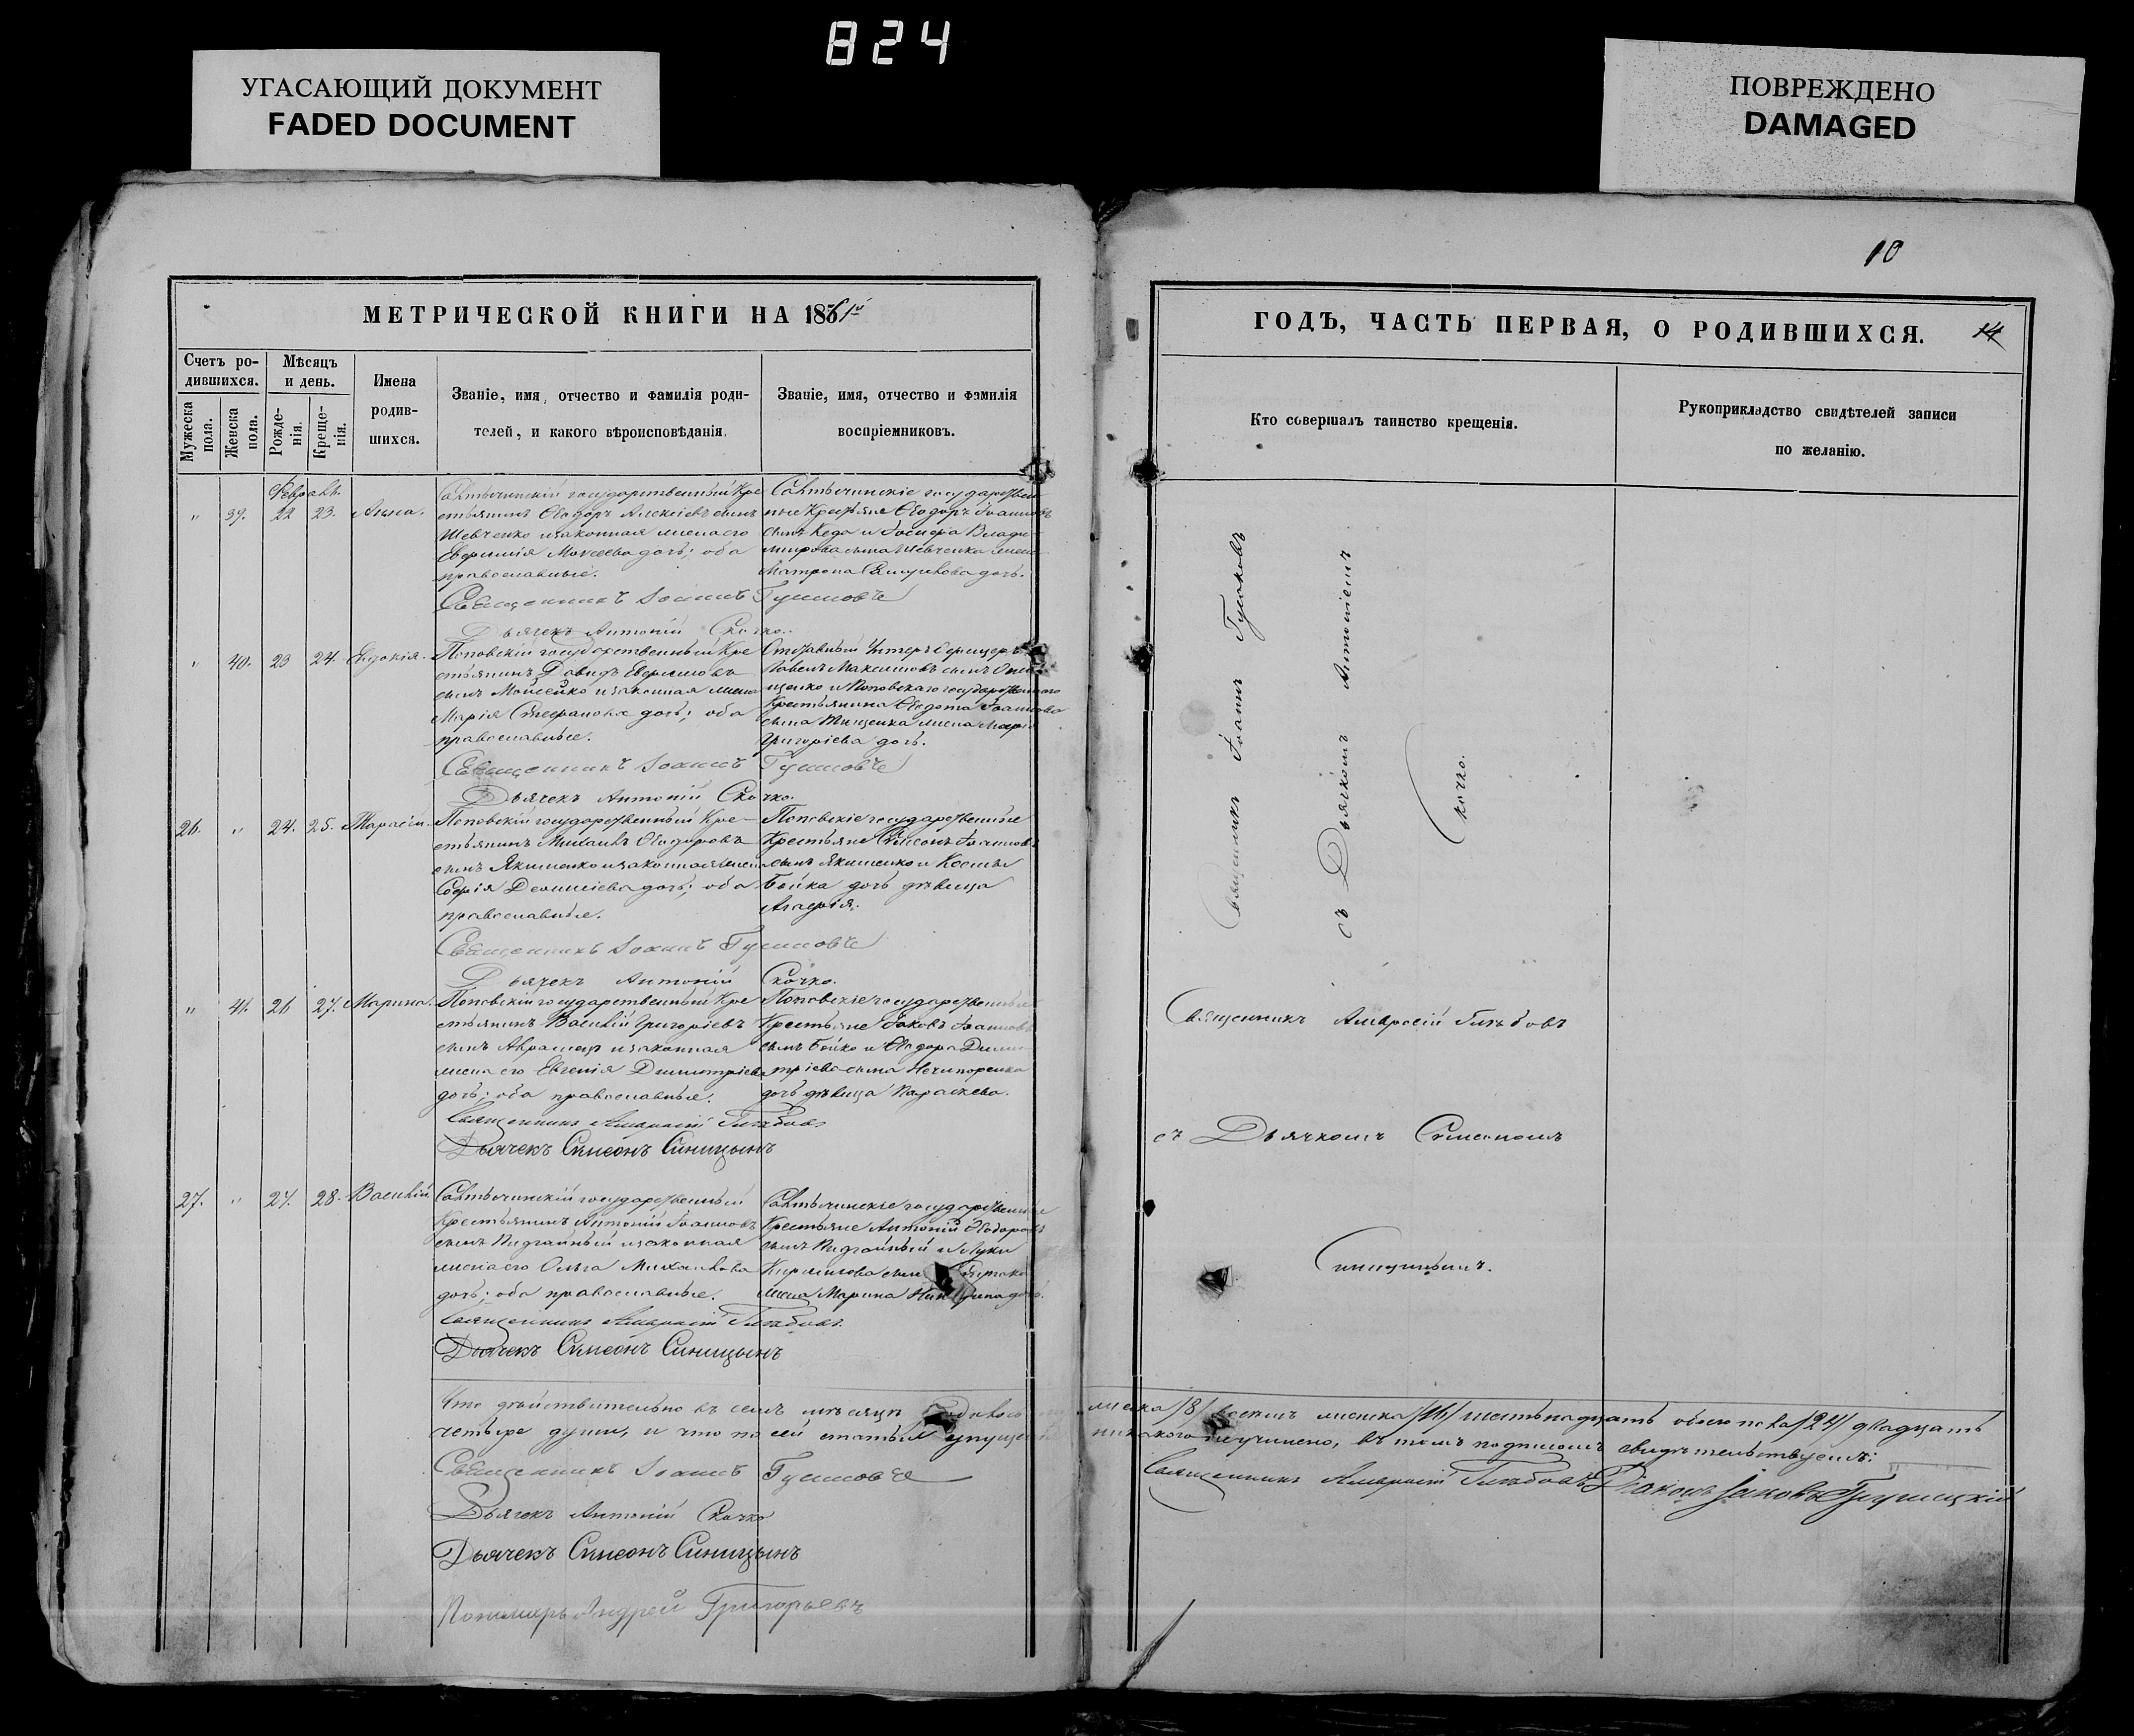 824
УГАСАЮЩИЙ ДОКУМЕНТ
FADED DOCUMENT
ПОВРЕЖДЕНО
DAMAGED
10
МЕТРИЧЕСКОЙ КНИГИ НА 1861й
Счетъ ро-
дившихся.
Мужеска
пола.
Женска
пола.
Мѣсяцъ
и день.
Рожде-
нія.
Креще-
нія.
Имена
родив-
шихся.
Званіе, имя, отчество и фамилія роди-
телей, и какого вѣроисповѣданія.
Званіе, имя, отчество и фамилія
воспріемниковъ.
Февраль.
„ 39. 22 23. Анна.
государственный Кре
стьянинъ Ѳеодоръ Алексіевъ сынъ
Шевченко и законная жена его
Евфимія Моисеева дочь; оба
православные.
государствен
ные Крестьяне Ѳеодоръ Іоанновъ
сынъ Кеда и Іосифа Влади
мирова сына Шевченка жена
Матрона дочь.
Священникъ Іоаннъ
Дьячекъ Антоній Скочко.
„ 40. 23 24. Евдокія.
Поповскій государственный Кре
стьянинъ Давидъ Евфимовъ
сынъ Мойсейко и законная жена
Марія Стефанова дочь; оба
православные.
Отставный Унтеръ Офицеръ
Павелъ Максимовъ сынъ
щенко и Поповскаго государственнаго
Крестьянина Ѳедота Іоаннова
сына Тищенка жена Марія
Григоріева дочь.
Священникъ Іоаннъ
Дьячекъ Антоній Скочко.
26. „ 24. 25. Тарасій.
Поповскій государственный Кре-
стьянинъ Михаилъ Ѳеодоровъ
сынъ Якименко и законная жена
Софія Діонисіева дочь; оба
православные.
Поповскіе государственные
Крестьяне Симеонъ Іоанновъ
сынъ Якименко и Космы
Бойка дочь дѣвица
Агафія.
Священникъ Іоаннъ
Дьячекъ Антоній Скочко.
„ 41. 26 27. Марина.
Поповскій государственный Кре
стьянинъ Василій Григоріевъ
сынъ и законная
жена его Евгенія Димитріева
дочь; оба православные.
Поповскіе государственные
Крестьяне Іаковъ Іоанновъ
сынъ Бойко и Ѳеодора Дими
тріева сына Нечипоренка
дочь дѣвица Параскева.
Священникъ Амвросій Глѣбовъ
Дьячекъ Симеонъ Синицынъ
27. „ 27. 28. Василій.
государственный
Крестьянинъ Антоній Іоанновъ
сынъ и законная
жена его Ольга Михайлова
дочь; оба православные.
государственные
Крестьяне Антоній Ѳеодоровъ
сынъ и Луки
Кириллова сына
жена Марина дочь.
Священникъ Амвросій Глѣбовъ.
Дьячекъ Симеонъ Синицынъ
ГОДЪ, ЧАСТЬ ПЕРВАЯ, О РОДИВШИХСЯ. 14
Кто совершалъ таинство крещенія.
Рукоприкладство свидѣтелей записи
по желанію.
Священникъ Іоаннъ
съ Дьячкомъ Антоніемъ
Скочко.
Священникъ Амвросій Глѣбовъ
съ Дьячкомъ Симеономъ
Синицынымъ.
Что дѣйствительно въ семъ мѣсяцѣ родилось
жеска /8/ восемь женска /16/ шестьнадцать обоего пола /24/ двадцать
четыре души, и что по сей статьи упущенія
никакого не учинено, въ томъ подписомъ свидѣтельствуемъ:
Священникъ Іоаннъ
Священникъ Амвросій Глѣбовъ Діаконъ Іаковъ
Дьячекъ Антоній Скочко
Дьячекъ Симеонъ Синицынъ
Пономарь Андрей Григорьевъ